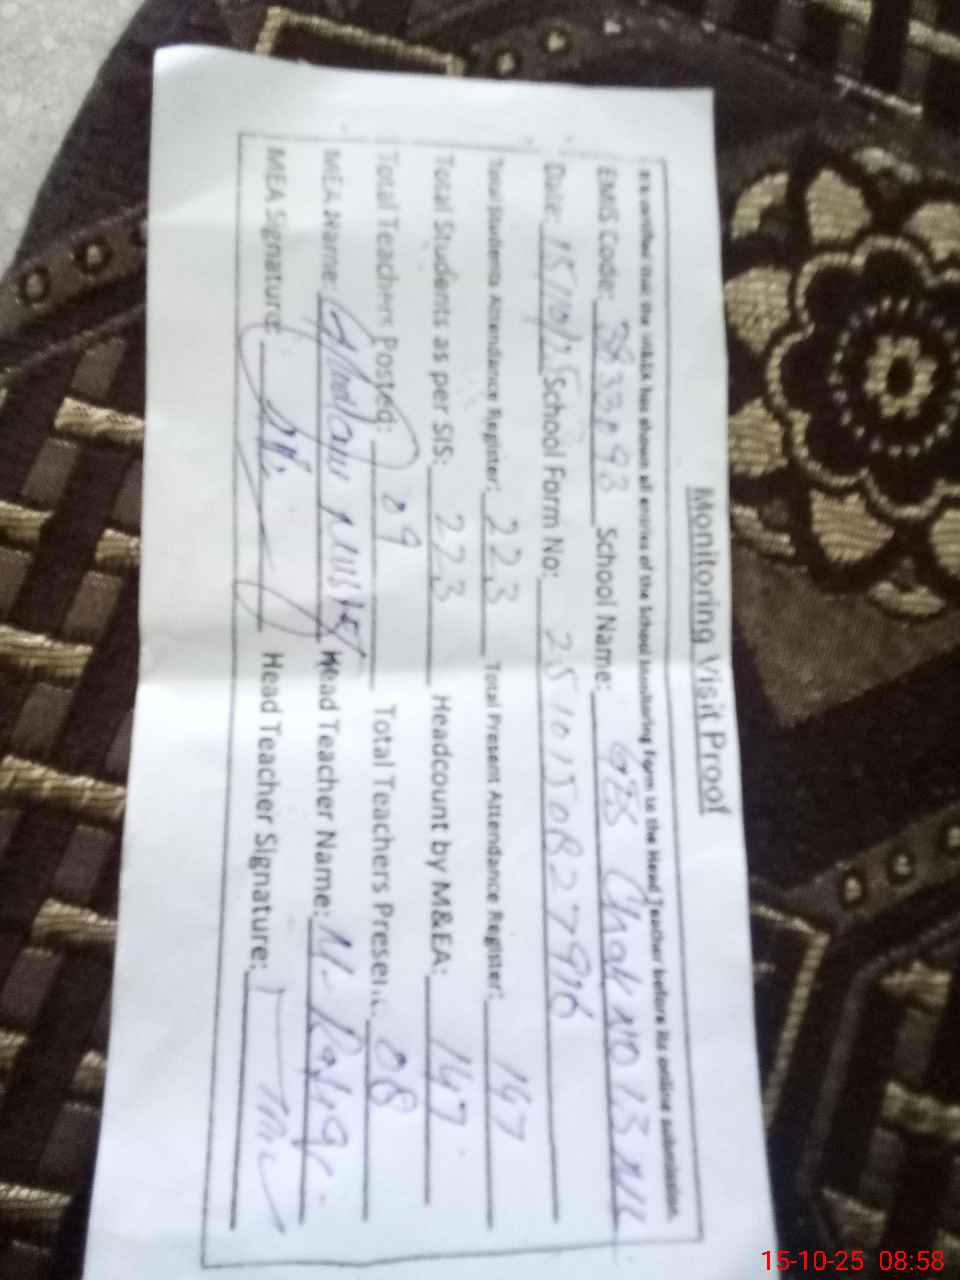 Monitoring Visit Proof
It is certified that the M&EA has shown all entries of the School Monitoring Form to the Head Teacher before its online submission.
EMIS Code: School Name: GES Chak NO 13
Date: 15/10/25 School Form No:
Total Students Attendance Register: 223 Total Present Attendance Register: 147
Total Students as per SIS: 223 Headcount by M&EA: 147
Total Teachers Posted: 09 Total Teachers Present: 08
MEA Name: Head Teacher Name: M.
MEA Signature: Head Teacher Signature:
15-10-25 08:58